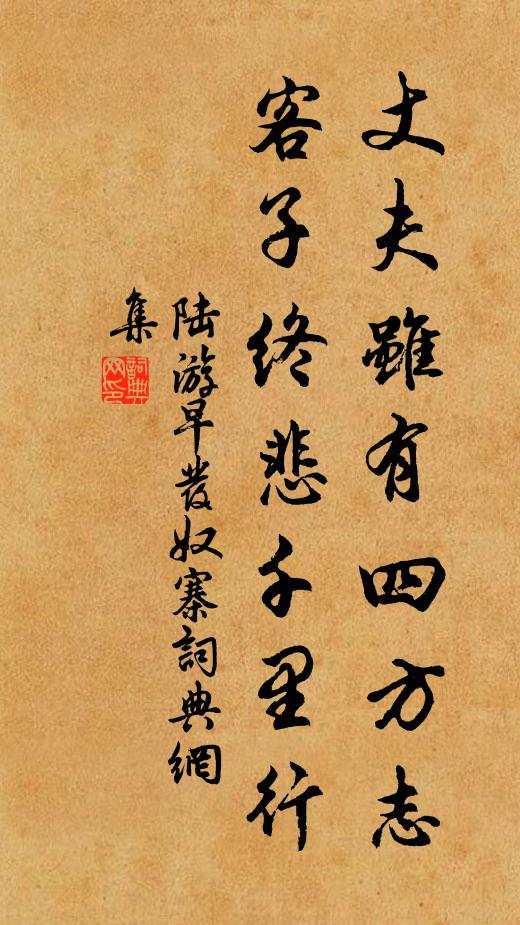 丈夫雖有四方志
客子終悲千里行
陸游早發奴寨詞典網
集
詞典
网印